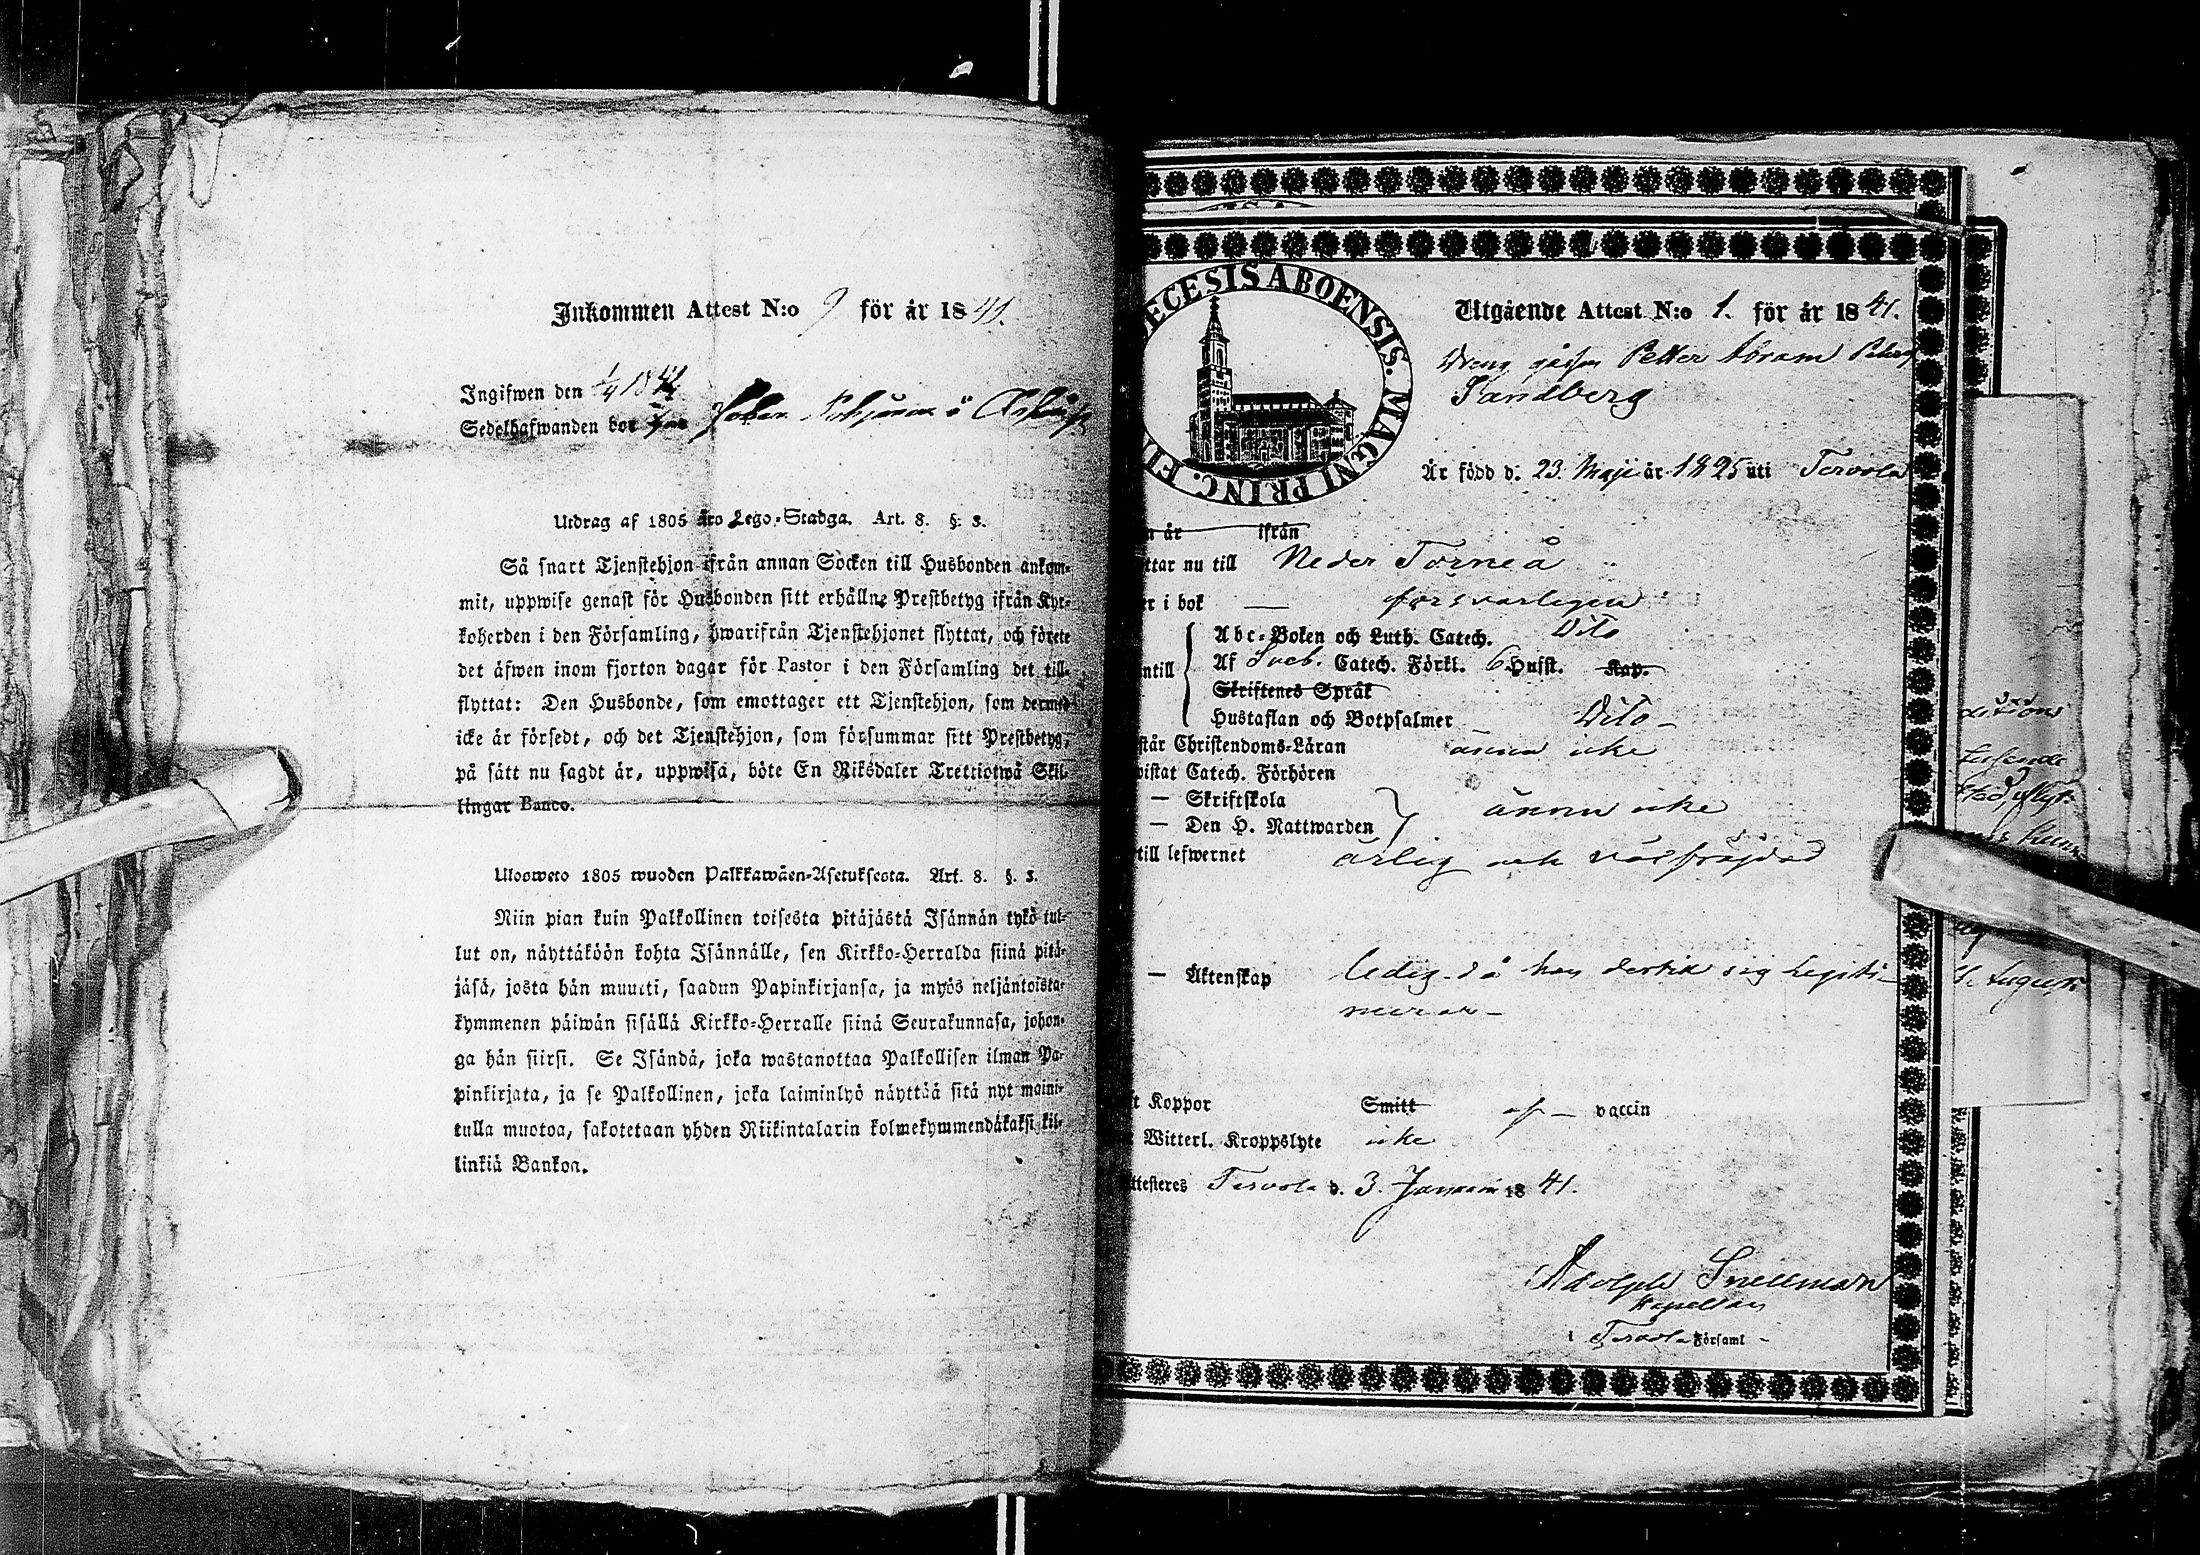 Inkommen Attest N:o 9 för år 1841.
Ingifwen den 1/9 1841
Sedelhafwanden hos
Utdrag af 1805 års Lego-Stadga. Art. 8. §. 3.
Så snart Tjenstehjon ifrån annan Socken till Husbonden ankom-
mit, uppwise genast för Husbonden sitt erhållne Prestbetyg ifrån Kyr-
koherden i den Församling, hwarifrån Tjenstehjonet flyttat, och förete
det äfwen inom fjorton dagar för Pastor i den Församling det till-
flyttat: Den Husbonde, som emottager ett Tjenstehjon, som dermed
icke är försedt, och det Tjenstehjon, som försummar sitt Prestbetyg,
på sätt nu sagdt är, uppwisa, böte En Riksdaler Trettiotwå Skil-
lingar Banco.
Ulosweto 1805 wuoden Palkkawäen-Asetuksesta. Art. 8. §. 3.
Niin pian kuin Palkollinen toisesta pitäjästä Isännän tykö tul-
lut on, näyttäköön kohta Isännälle, sen Kirkko-Herralda siinä pitä-
jäsä, josta hän muutti, saadun Papinkirjansa, ja myös neljäntoista-
kymmenen päiwän sisällä Kirkko-Herralle siinä Seurakunnasa, johon-
ga hän siirsi. Se Isändä, joka wastanottaa Palkollisen ilman Pa-
pinkirjata, ja se Palkollinen, joka laiminlyö näyttää sitä nyt maini-
tulla muotoa, sakotetaan yhden Riikintalarin kolmekymmendäkaksi kil-
linkiä Bankoa.
ECESIS ABOENSIS. MAGNI PRINC. FI
Utgående Attest N:o 1. för år 1841.
Dreng gåssen Petter Abram Peters
Sandberg
Är född d. 23. Maji år 1825 uti Tervola
n år ifrån
ttar nu till Neder Torneå
er i bok — försvarligen
Abc-Boken och Luth. Catech. Dito
ntill Af Sveb. Catech. Förkl. 6 Husst. Kap.
Skriftenes Språk
Hustaflan och Botpsalmer Dito —
står Christendoms-Läran ännu icke
wistat Catech. Förhören
— Skriftskola
— Den H. Nattwarden ännu icke
till lefwernet ärlig och välfrejdad
— Äktenskap ledig då han dertill sig legiti-
merar —
t Koppor Smitt af — vaccin
Witterl. Kroppslyte icke
ttesteres Tervola d. 3. Januari 1841.
Adolph Snellman
Kapellan
i Tervola Församl —